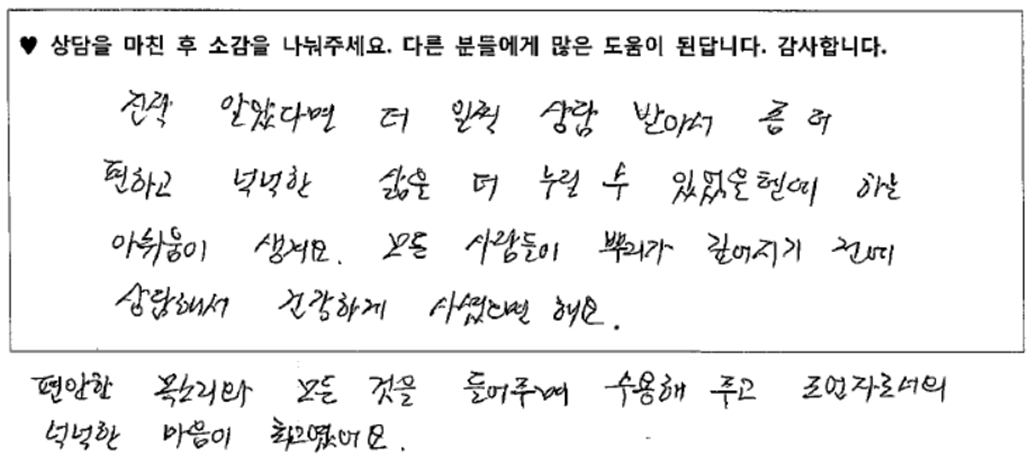 ♥ 상담을 마친 후 소감을 나눠주세요. 다른 분들에게 많은 도움이 된답니다. 감사합니다.
진작 알았다면 더 일찍 상담 받아서 좀 더
편하고 넉넉한 삶을 더 누릴 수 있었을텐데 하는
아쉬움이 생겨요. 모든 사람들이 뿌리가 깊어지기 전에
상담해서 건강하게 사셨으면 해요.
편안한 목소리와 모든 것을 들어주며 수용해 주고 조언자로서의
넉넉한 마음이 최고였어요.